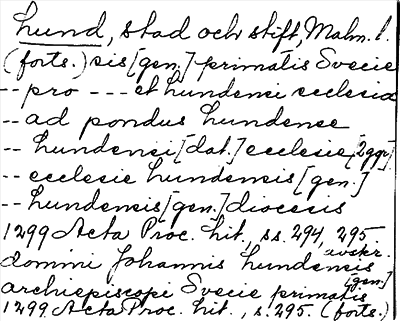 Lund, stad och stift, Malm. l.
(forts.) sis [gen.] primatis Svecie
-- pro --- et Lundensi ecclesia
-- ad pondus Lundense
-- Lundensi [dat.] ecclesie [2ggr]
-- ecclesie Lundensis [gen.]
-- Lundensis [gen.] diocesis
1299 Acta Proc. lit., ss. 294, 295 avskr.
domini Johannis Lundensis [gen.]
archiepiscopi Svecie primatis
1299 Acta Proc. lit., s. 295. (forts.)